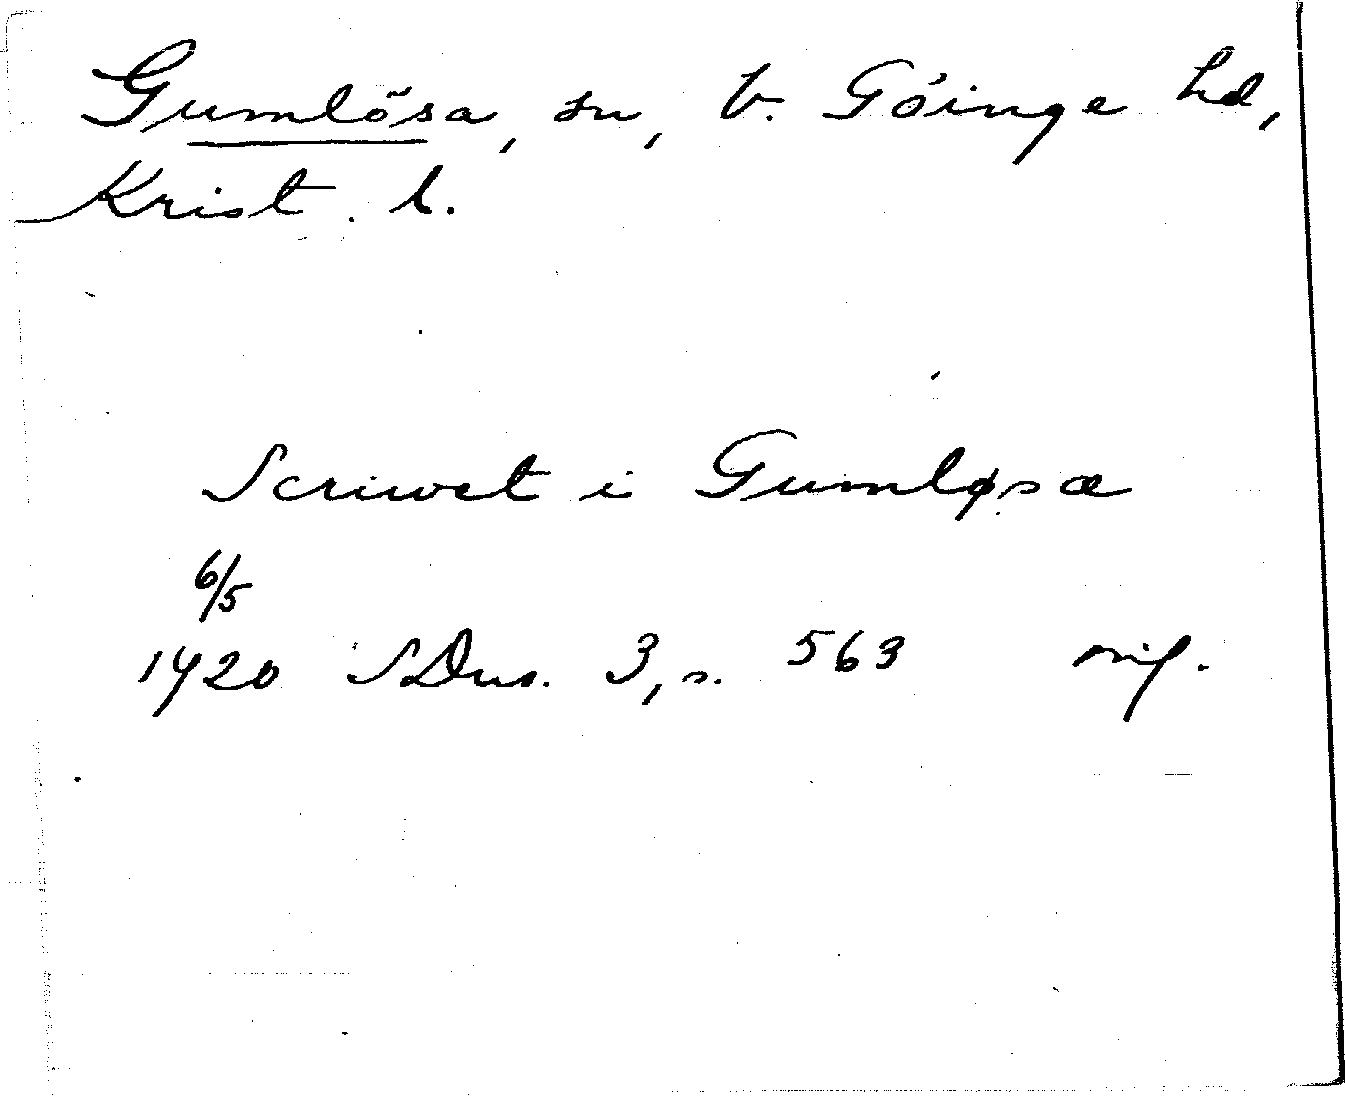 Gumlösa, sn, V. Göinge hd,
Krist. l.
Scriwet i Gumløsæ
6/5
1420 SDns. 3, s. 563 orig.